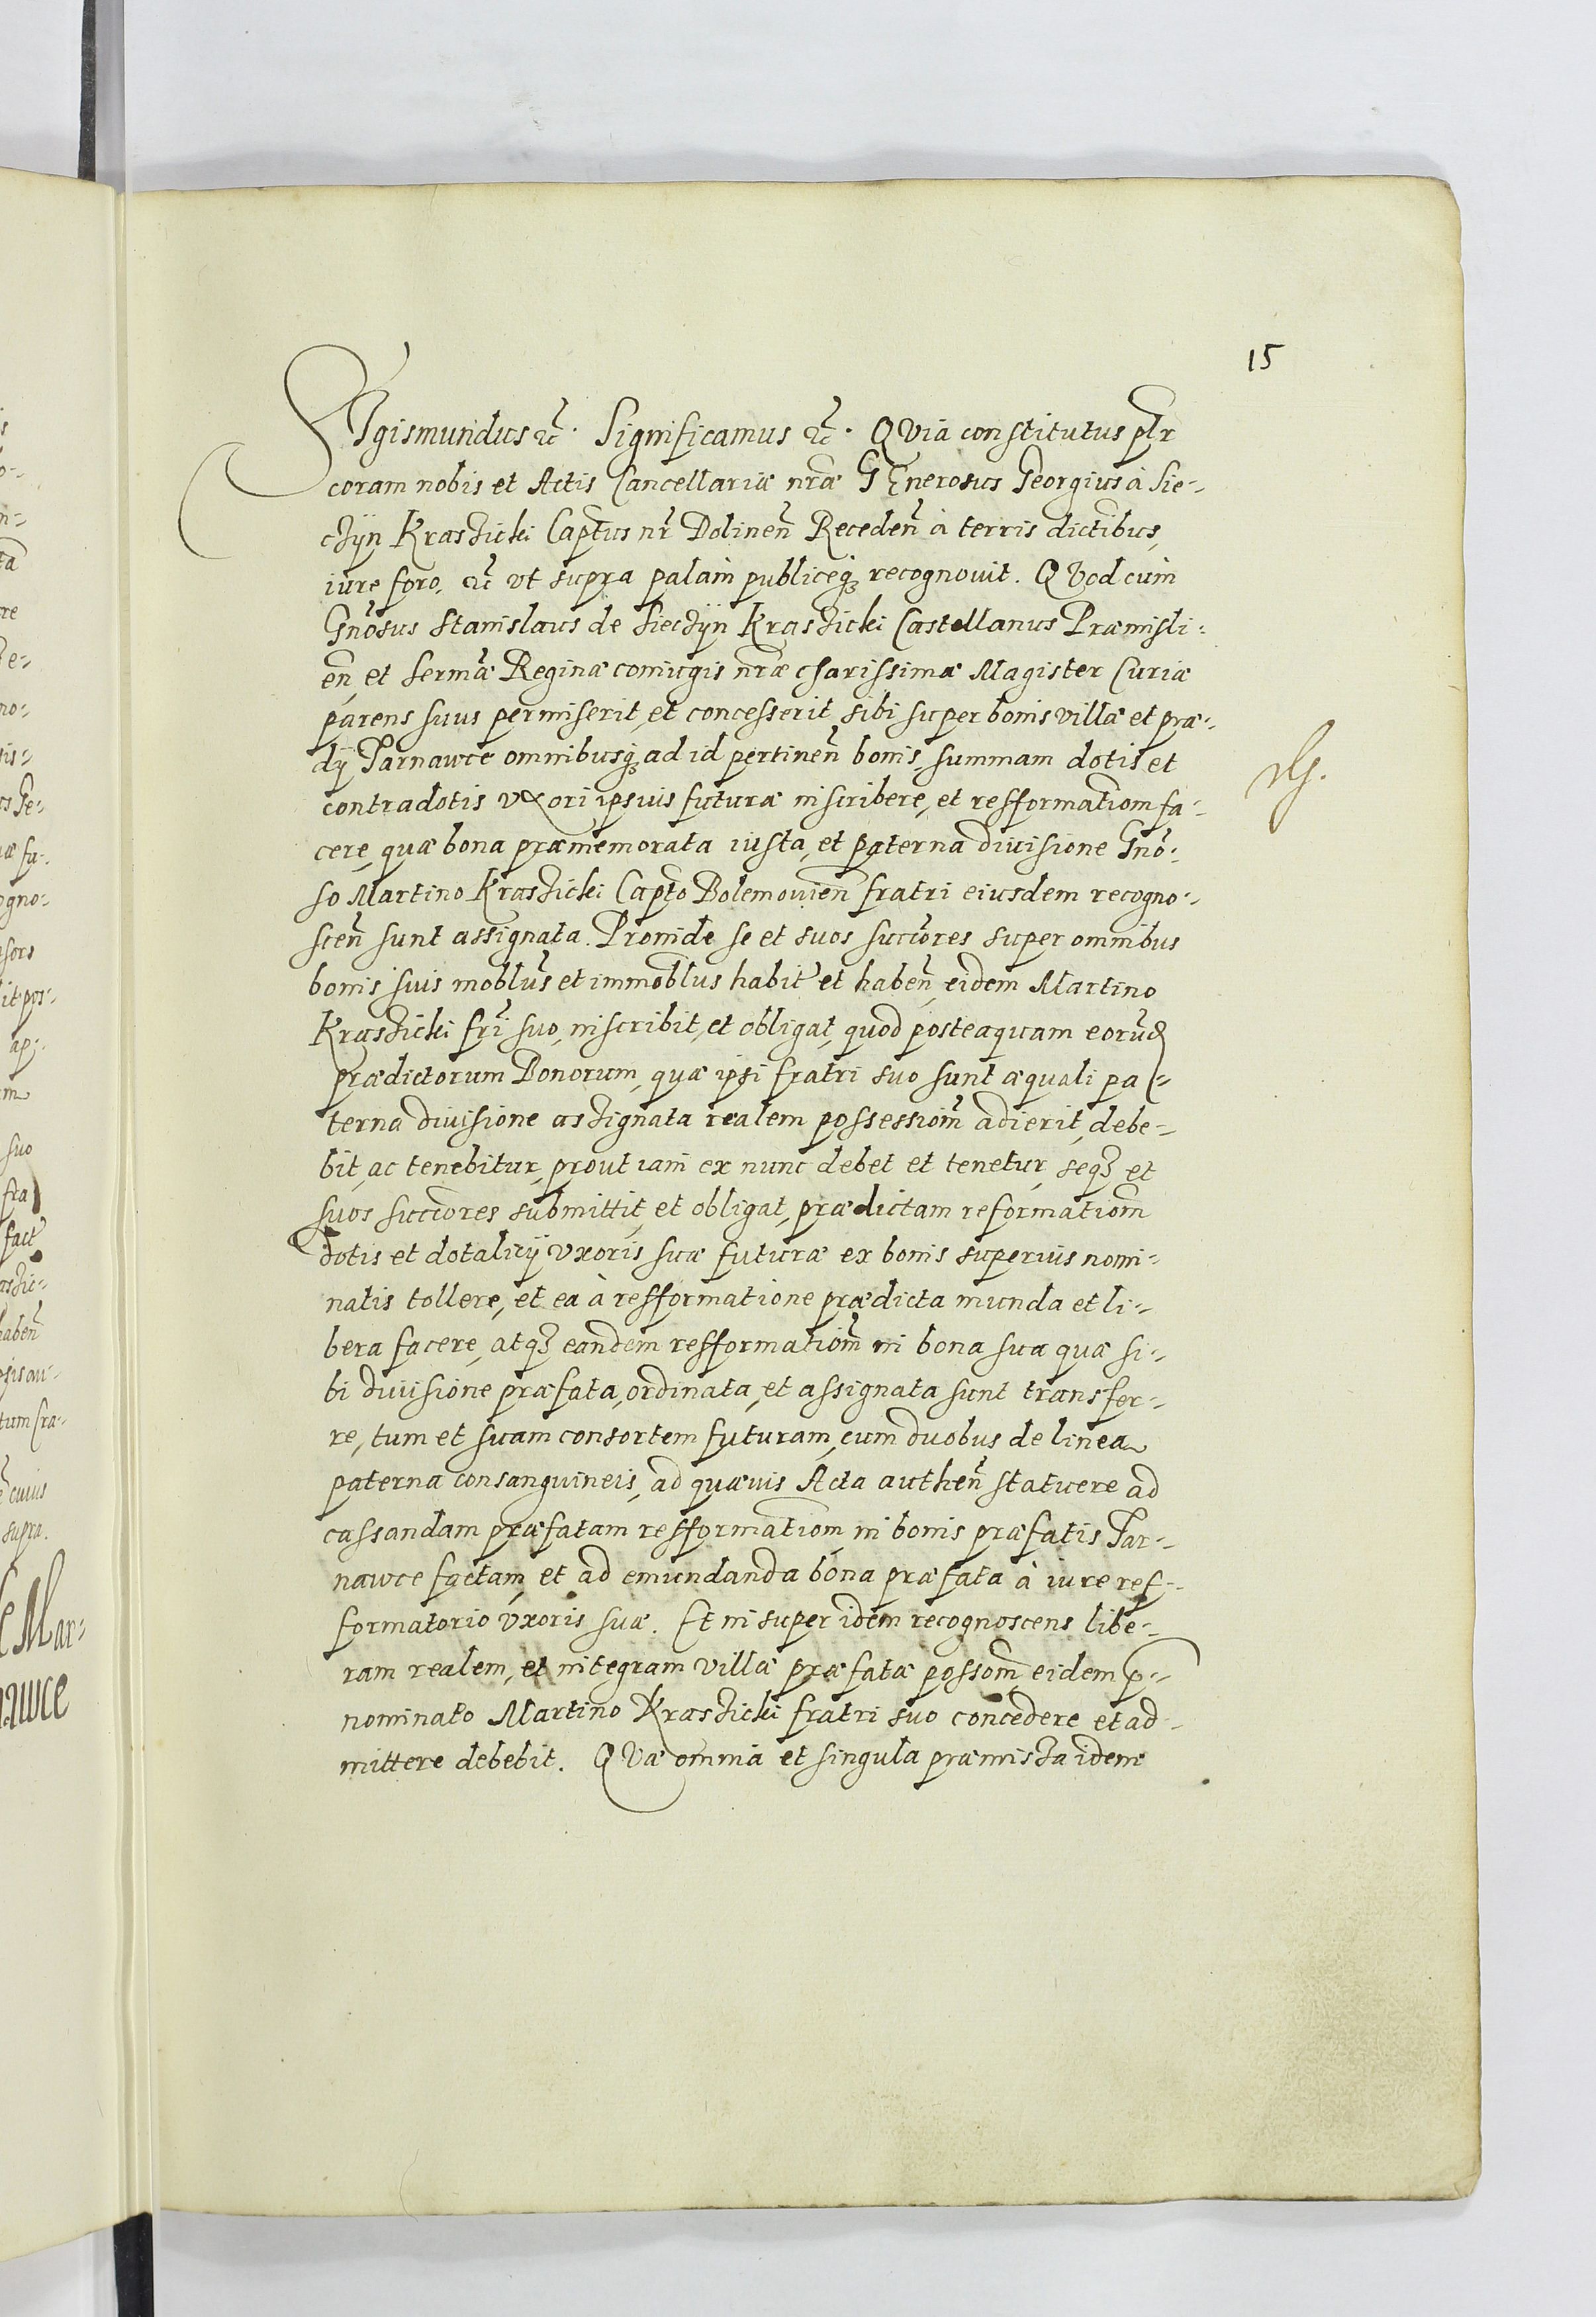 15
SIgismundus etc. Significamus etc. QVia constitutus plr
coram nobis et Actis Cancellariæ nræ GEnerosus Georgius à Sie-
czÿn Krasicki Captus nr Dolinen Receden à terris dictibus,
iure foro, etc ut supra palam publiceq3 recognovit. QVod cum
Gnosus Stanislaus de Sieczÿn Krasicki Castellanus Præmisli:
en, et Sermæ Reginæ coniugis nræ charissimæ Magister Curiæ
parens suus permiserit, et concesserit sibi super bonis villæ et præ-
dÿ Tarnawce omnibusq3 ad id pertinen bonis, summam dotis et
contradotis vxori ipsius futuræ inscribere, et refformatiom fa-
cere, quæ bona præmemorata iusta, et paterna divisione Gno-
so Martino Krasicki Capto Bolemovien fratri eiusdem recogno-
scen sunt assignata. Proinde se et suos succores super omnibus
bonis suis moblus et immoblus habit et haben, eidem Martino
Krasicki fri suo, inscribit, et obligat, quod posteaquam eorud
prædictorum Bonorum, quæ ipsi fratri suo sunt æquali pa-
terna divisione assignata realem possessiom adierit, debe-
bit, ac tenebitur, prout iam ex nunc debet et tenetur, seq3 et
suos succores submittit, et obligat, prædictam reformatiom
dotis et dotalicÿ vxoris suæ futuræ ex bonis superius nomi-
natis tollere, et ea à refformatione prædicta munda et li-
bera facere, atq3 eandem refformatiom in bona sua quæ si-
bi divisione præfata, ordinata, et assignata sunt transfer-
re, tum et suam consortem futuram, cum duobus de linea
paterna consanguineis, ad quævis Acta authen statuere ad
cassandam præfatam refformatiom, in bonis præfatis Tar-
nawce factam, et ad emundanda bona præfata à iure ref-
formatorio vxoris suæ. Et insuper idem recognoscens libe-
ram realem, et integram villæ præfatæ possom eidem p-
nominato Martino Krasicki fratri suo concedere et ad-
mittere debebit. QVæ omnia et singula præmissa idem